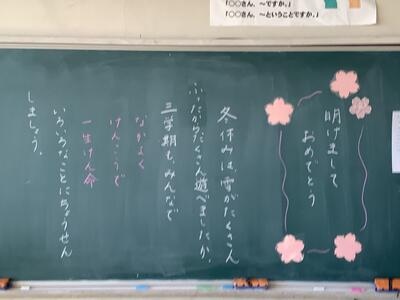 「○○さん、～ですか。」
「○○さん、～ということですか。」
明けまして
おめでとう
冬休みは、雪がたくさん
ふったからたくさん遊べましたか。
三学期も、みんなで
なかよく
けんこうで
一生けん命
いろいろなことにちょうせん
しましょう。